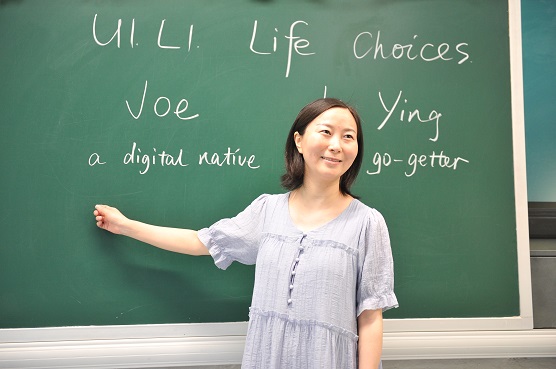 U1. L1. Life Choices
Joe Ying
a digital native go-getter